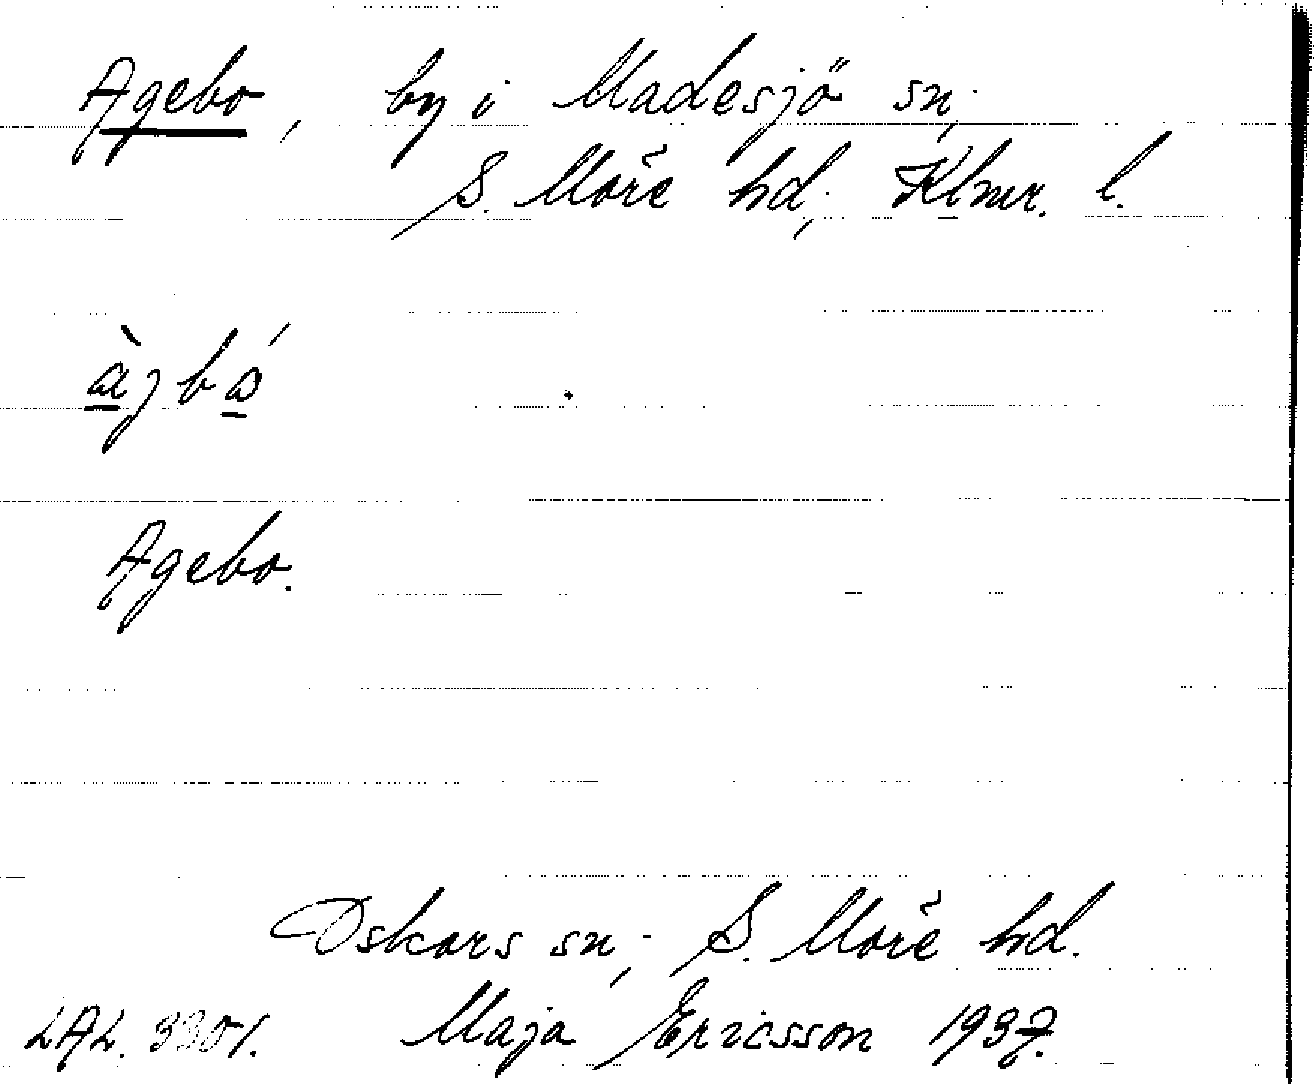 Agebo, by i Madesjö sn,
S. Möre hd, Klmr. l.
àgbó
Agebo.
Oskars sn, S. Möre hd.
LAL. 3301. Maja Ericsson 1937.